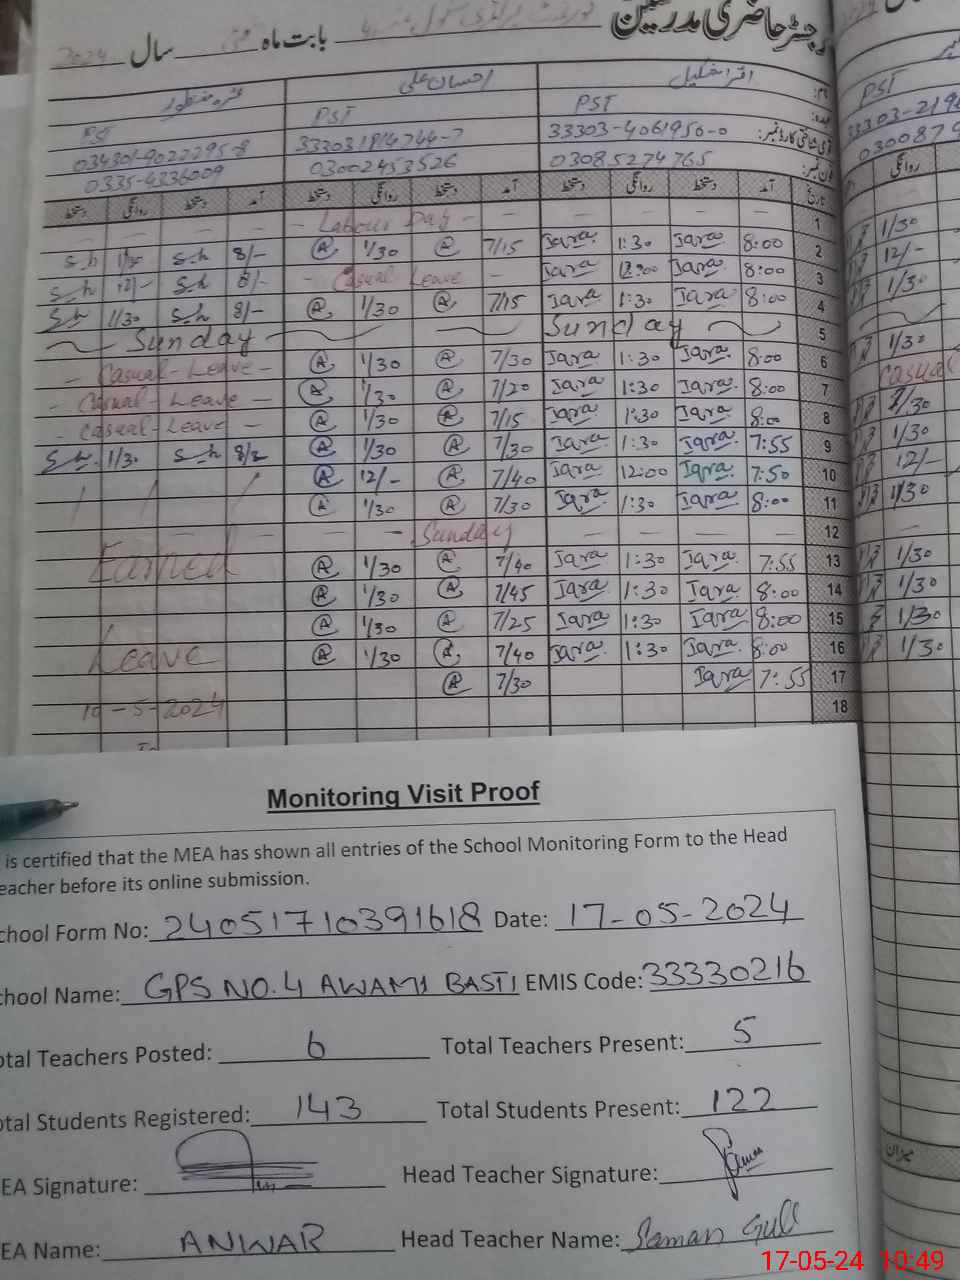 رجسٹر حاضری مدرسین گورنمنٹ پرائمری سکول نمبر 4 بابت ماہ مئی سال 2024
نام: اقراء شکیل احسان علی
عہدہ: PST PST PST PST
قومی شناختی کارڈ نمبر: 33303-4061950-0 333031814744-7 034301-9022295-8
فون نمبر: 03085274765 03002453526 0335-4336009
تاریخ آمد دستخط روانگی دستخط آمد دستخط روانگی دستخط آمد دستخط روانگی دستخط روانگی
- - - Labour Day - - - - - 1
Sh 1/30 Sh 8/- A 1/30 A 7/15 Iqra 1:30 Iqra 8:00 2 1/30
Sh 12/- Sh 8/- - Casual Leave - Iqra 12:00 Iqra 8:00 3 12/-
Sh 1/30 Sh 8/- A 1/30 A 7/15 Iqra 1:30 Iqra 8:00 4 1/30
Sunday Sunday 5
- Casual - Leave - A 1/30 A 7/30 Iqra 1:30 Iqra 8:00 6 1/30
- Casual - Leave - A 1/30 A 7/20 Iqra 1:30 Iqra 8:00 7 Casual
- Casual - Leave - A 1/30 A 7/15 Iqra 1:30 Iqra 8:00 8 1/30
Sh 1/30 Sh A 1/30 A 7/30 Iqra 1:30 Iqra 7:55 9 1/30
A 12/- A 7/40 Iqra 12:00 Iqra 7:50 10 12/-
A 1/30 A 7/30 Iqra 1:30 Iqra 8:00 11 1/30
- Sunday - - - - 12
Earned A 1/30 A 7/40 Iqra 1:30 Iqra 7:55 13 1/30
A 1/30 A 7/45 Iqra 1:30 Iqra 8:00 14 1/30
A 1/30 A 7/25 Iqra 1:30 Iqra 8:00 15 1/30
Leave A 1/30 A 7/40 Iqra 1:30 Iqra 8:00 16 1/30
A 7/30 Iqra 7:55 17
10-5-2024 18
To
میزان
Monitoring Visit Proof
is certified that the MEA has shown all entries of the School Monitoring Form to the Head
eacher before its online submission.
chool Form No: 24051710391618 Date: 17-05-2024
chool Name: GPS NO.4 AWAMI BASTI EMIS Code: 33330216
otal Teachers Posted: 6 Total Teachers Present: 5
otal Students Registered: 143 Total Students Present: 122
EA Signature: Head Teacher Signature:
EA Name: ANWAR Head Teacher Name: Saman Gull
17-05-24 10:49